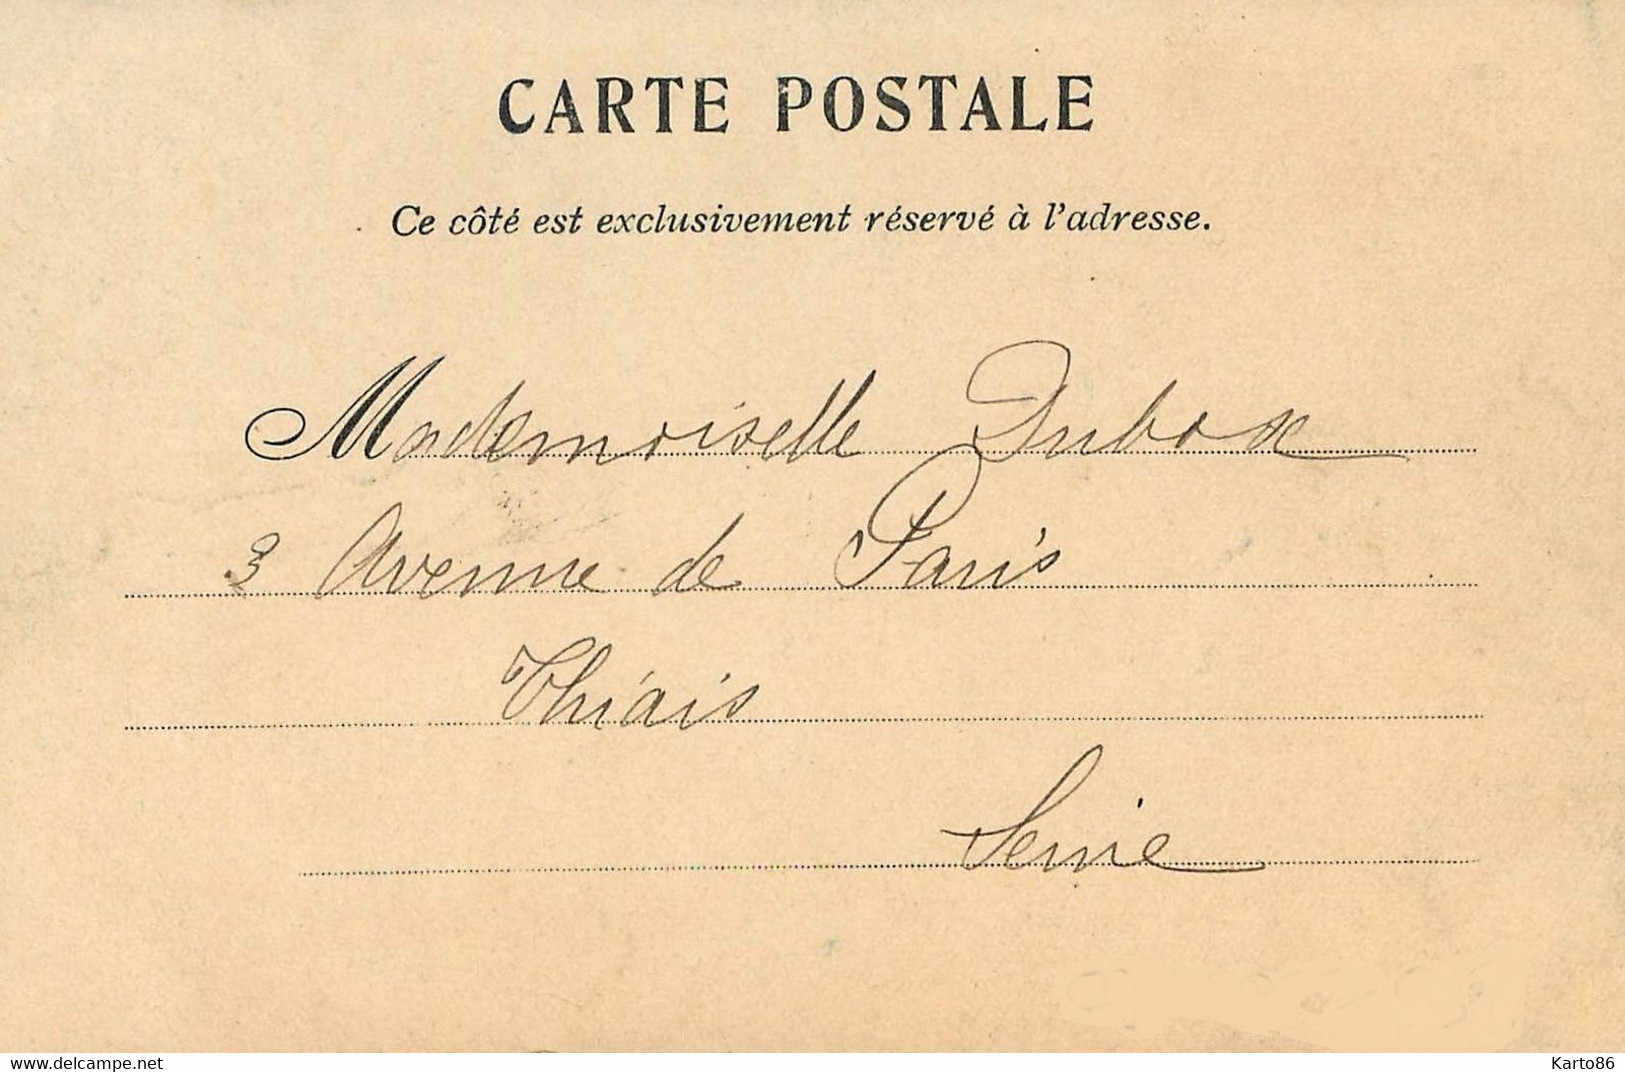 CARTE POSTALE
Ce côté est exclusivement réservé à l'adresse.
Mademoiselle Dubox
3 Avenue de Paris
Thiais
Seine
www.delcampe.net
Karto86